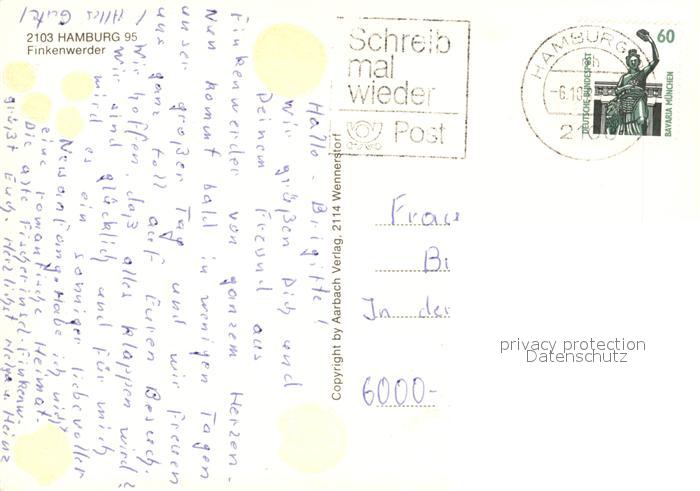 2103 HAMBURG 95
Finkenwerder
Hallo - Brigitte!
Wir grüßen Dich und
Deinem Freund aus
Finkenwerder von ganzem Herzen.
Nun kommt bald in wenigen Tagen
unser großer Tag und wir freuen
uns ganz toll auf Euren Besuch.
Wir hoffen, daß alles klappen wird?
Wir sind glücklich und für mich
wird es ein sonniger liebevoller
Neuanfang. Habe ich nicht
eine romantische Heimat.
Die alte Fischerinsel-Finkenw.
grüßt Euch. Herzlichst Helga u. Heinz
Alles Gute!
Copyright by Aarbach Verlag, 2114 Wennerstorf
Schreib
mal
wieder
Post
HAMBURG
-6.10
DEUTSCHE BUNDESPOST
60
BAVARIA MÜNCHEN
Frau
Bri
In der
6000-
privacy protection
Datenschutz